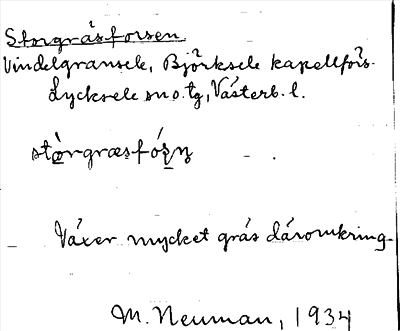 Storgräsforsen
Vindelgransele, Björksele kapellförs.
Lycksele sn o. tg, Västerb. l.
Växer mycket gräs däromkring.
M. Neuman, 1934